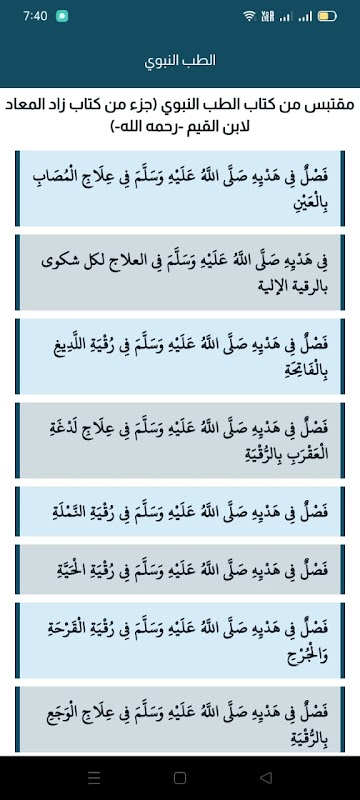 7:40
الطب النبوي
مقتبس من كتاب الطب النبوي (جزء من كتاب زاد المعاد
لابن القيم -رحمه الله-)
فَصْلٌ فِي هَدْيِهِ صَلَّى اللَّهُ عَلَيْهِ وَسَلَّمَ فِي عِلَاجِ الْمُصَابِ
بِالْعَيْنِ
فِي هَدْيِهِ صَلَّى اللَّهُ عَلَيْهِ وَسَلَّمَ فِي العلاج لكل شكوى
بالرقية الإلية
فَصْلٌ فِي هَدْيِهِ صَلَّى اللَّهُ عَلَيْهِ وَسَلَّمَ فِي رُقْيَةِ اللَّدِيغِ
بِالْفَاتِحَةِ
فَصْلٌ فِي هَدْيِهِ صَلَّى اللَّهُ عَلَيْهِ وَسَلَّمَ فِي عِلَاجِ لَدْغَةِ
الْعَقْرَبِ بِالرُّقْيَةِ
فَصْلٌ فِي هَدْيِهِ صَلَّى اللَّهُ عَلَيْهِ وَسَلَّمَ فِي رُقْيَةِ النَّمْلَةِ
فَصْلٌ فِي هَدْيِهِ صَلَّى اللَّهُ عَلَيْهِ وَسَلَّمَ فِي رُقْيَةِ الْحَيَّةِ
فَصْلٌ فِي هَدْيِهِ صَلَّى اللَّهُ عَلَيْهِ وَسَلَّمَ فِي رُقْيَةِ الْقَرْحَةِ
وَالْجُرْحِ
فَصْلٌ فِي هَدْيِهِ صَلَّى اللَّهُ عَلَيْهِ وَسَلَّمَ فِي عِلَاجِ الْوَجَعِ
بِالرُّقْيَةِ